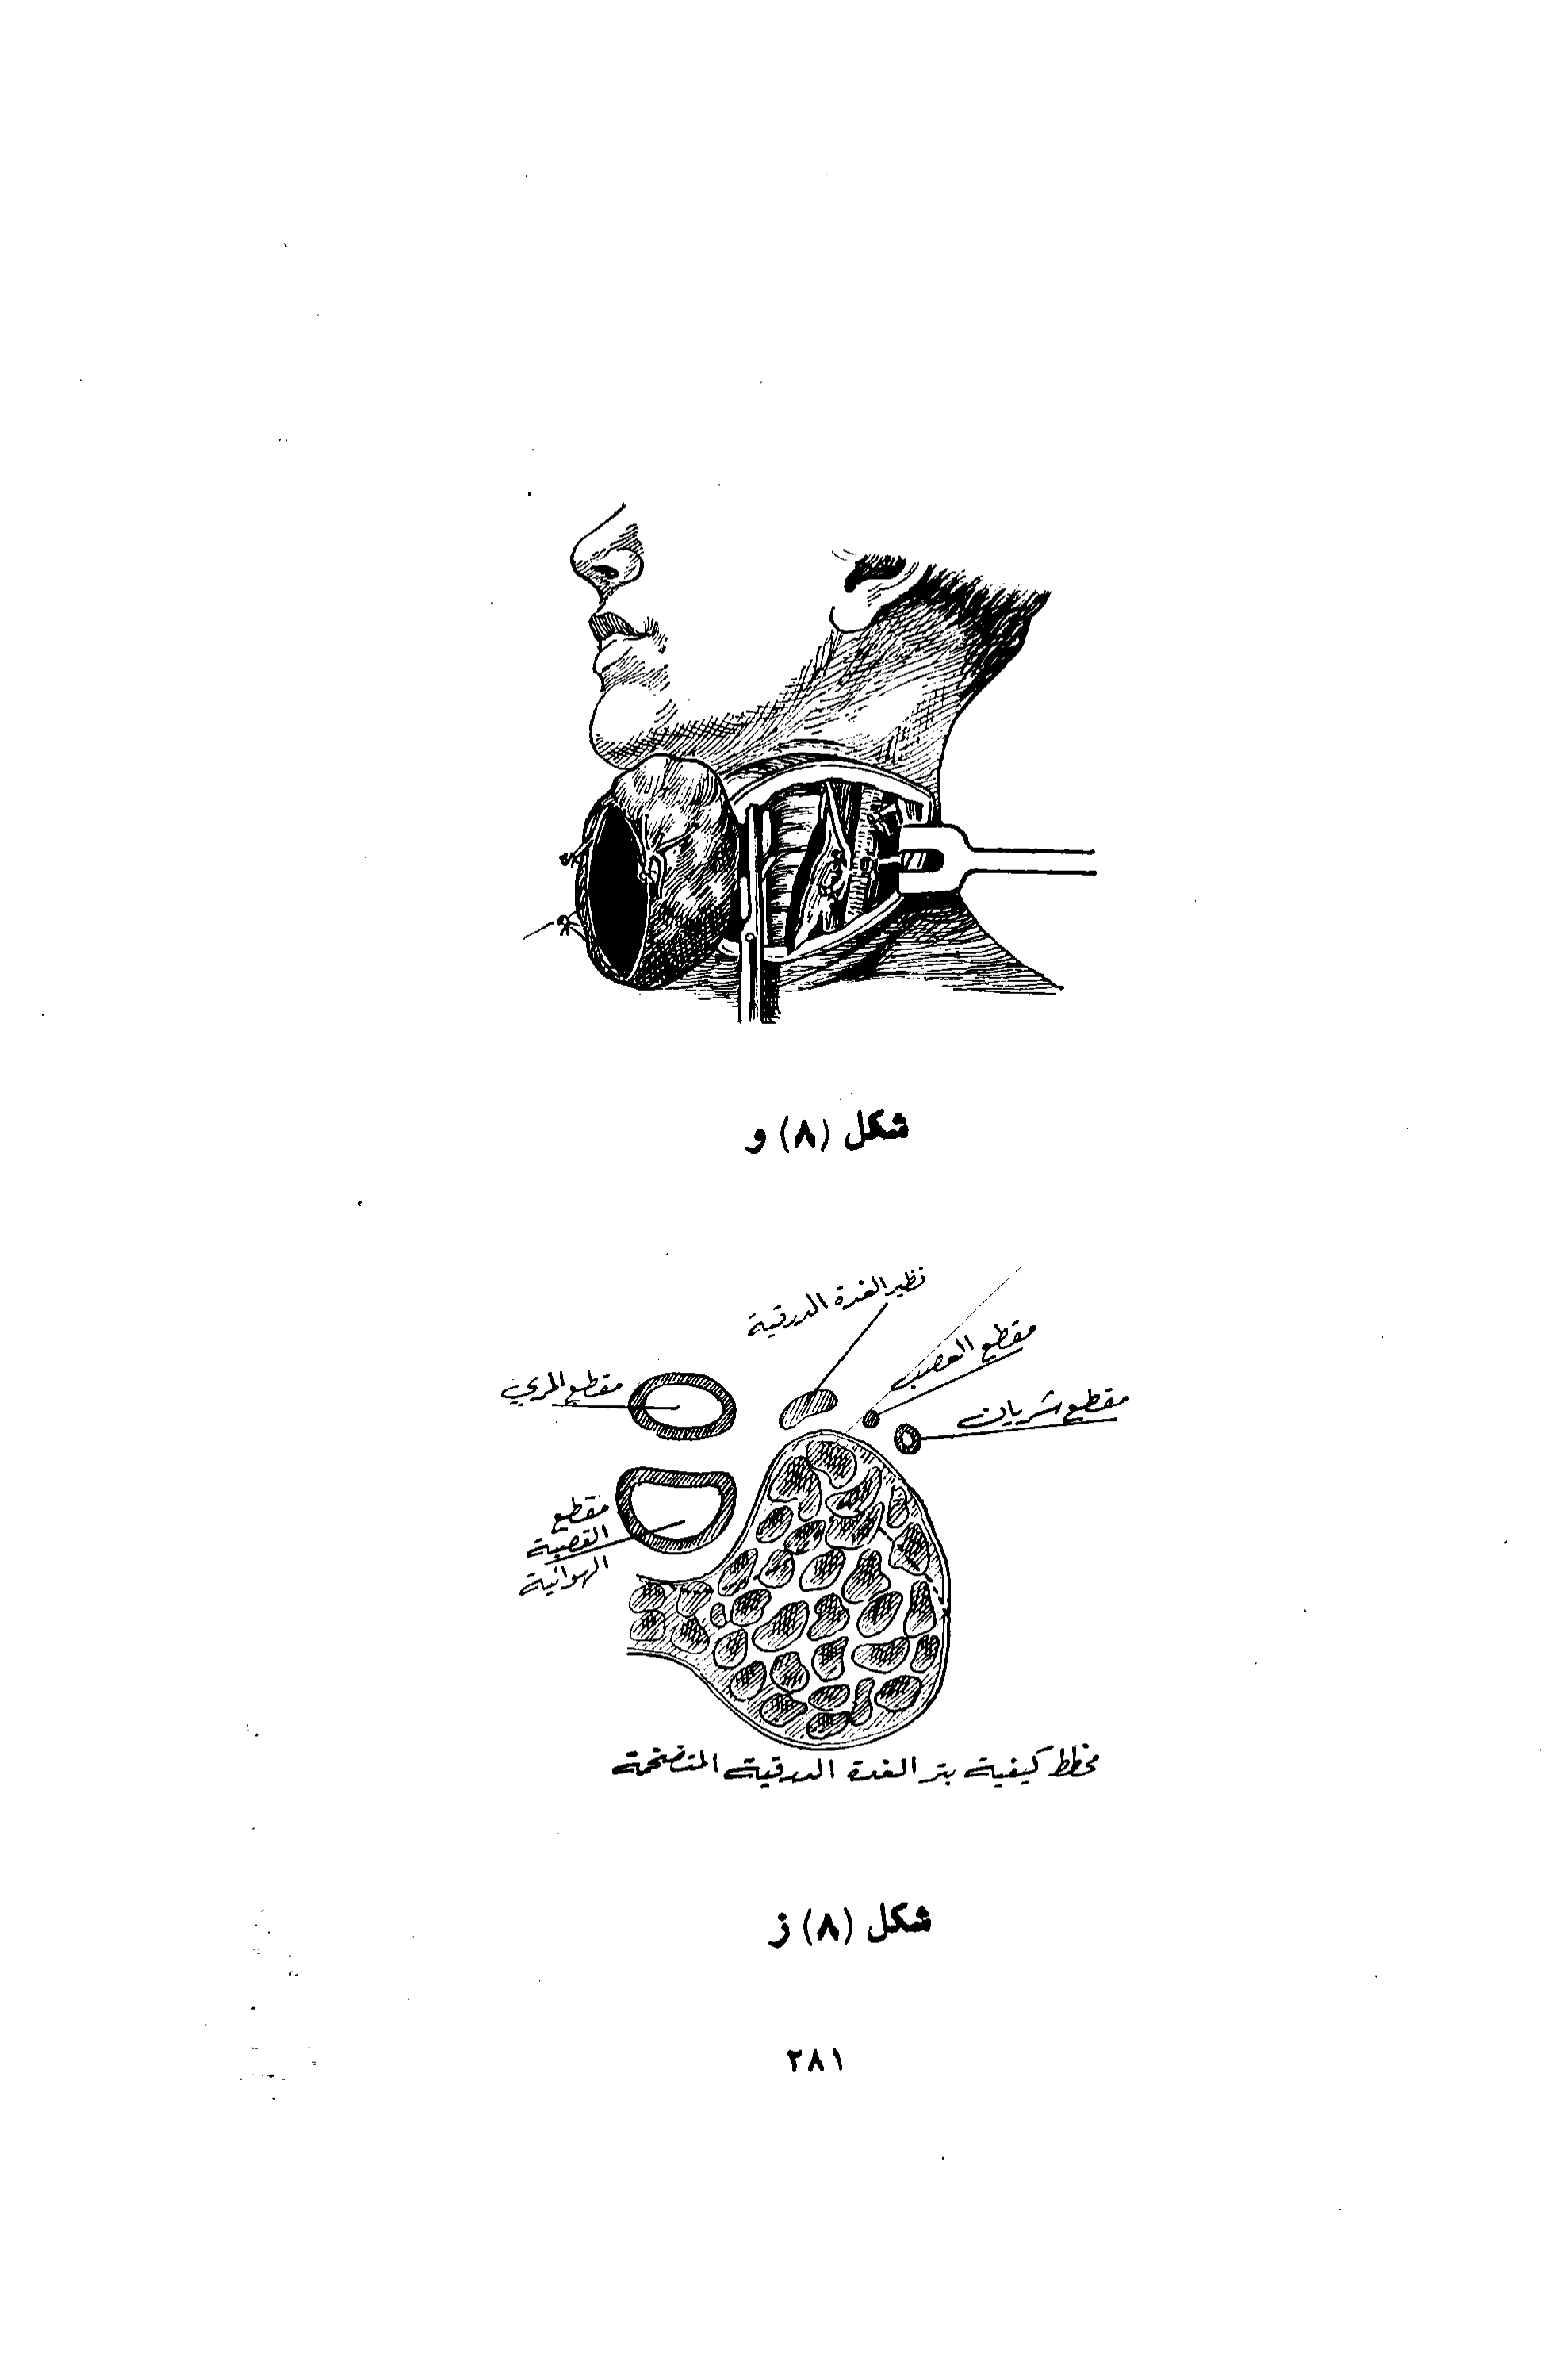 شكل (٨) و
نظير الغدة الدرقية
مقطع العصب
مقطع شريان
مقطع المري
مقطع
القصبة
الهوائية
مخطط كيفية بتر الغدة الدرقية المتضخمة
شكل (٨) ز
٢٨١